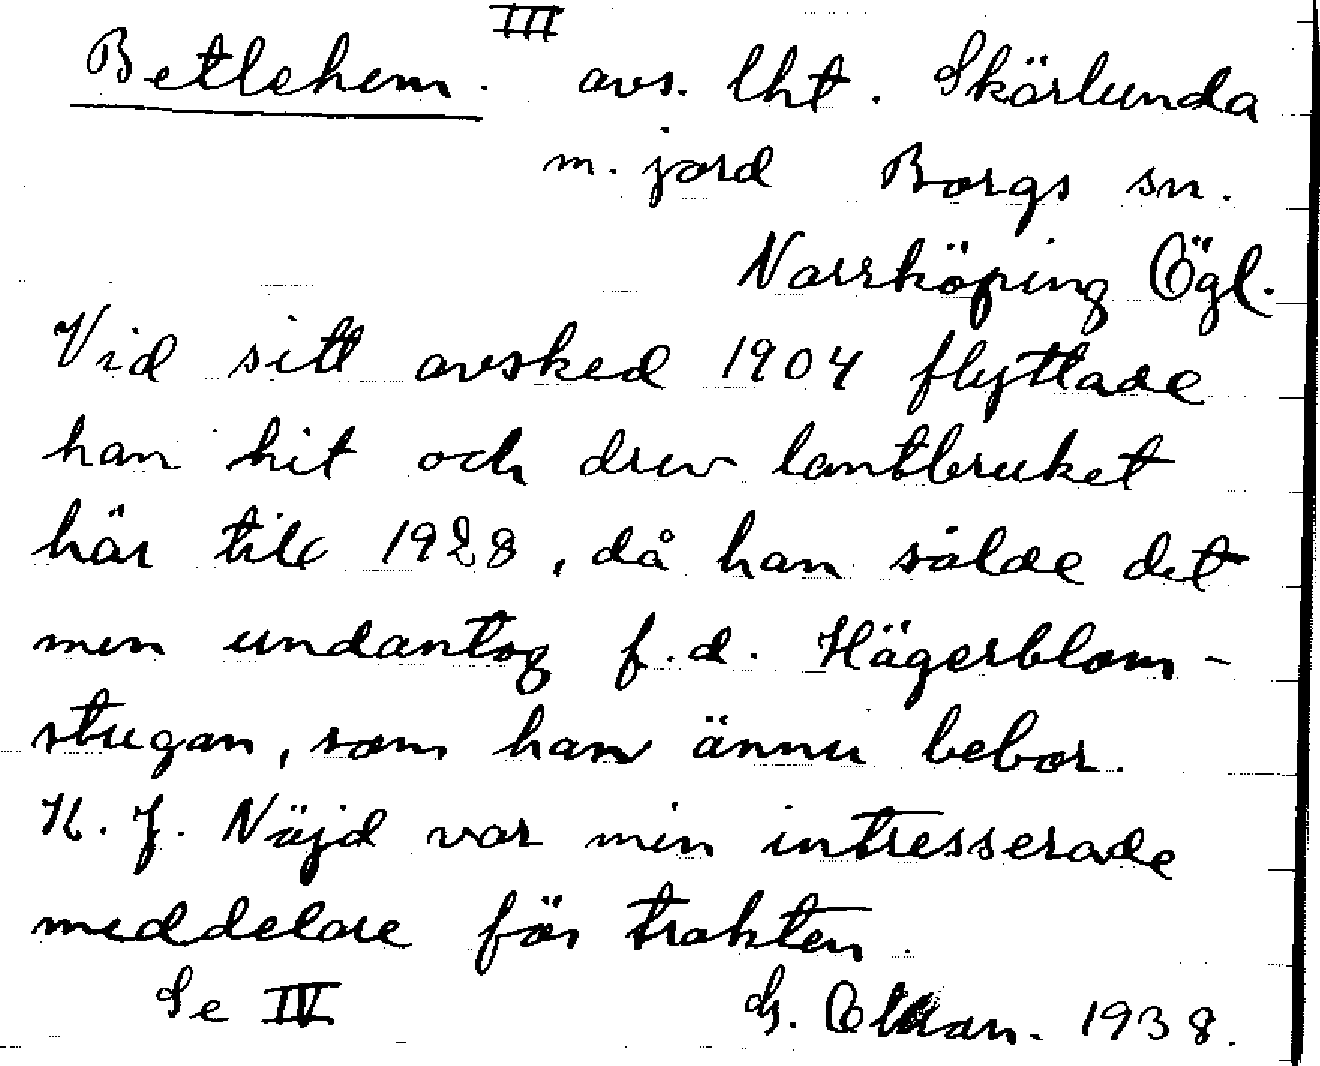 III
Betlehem. avs. lht. Skärlunda
m. jord Borgs sn.
Norrköping Ögl.
Vid sitt avsked 1904 flyttade
han hit och drev lantbruket
här till 1928, då han sålde det
men undantog f.d. Hägerblom-
stugan, som han ännu bebor.
K. J. Nöjd var min intresserade
meddelare för trakten.
Se IV G. 1938.